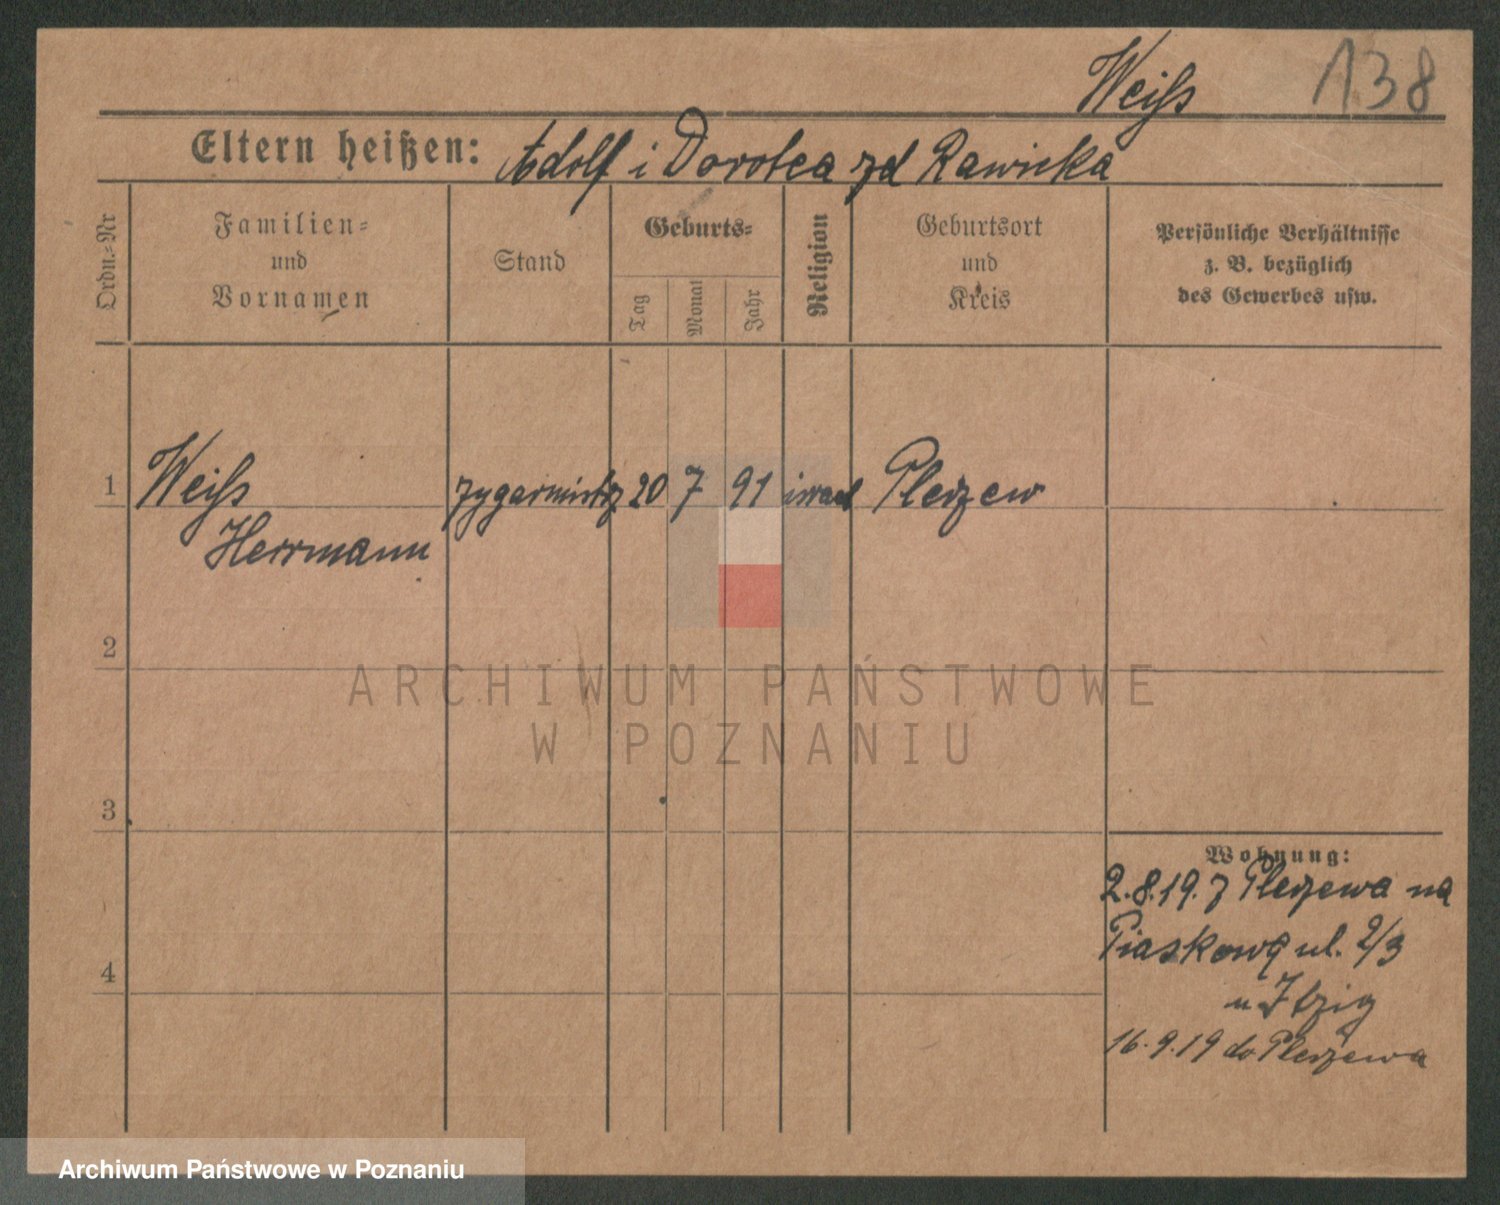 Weiſs 138
Eltern heißen: Adolf i Dorotea zd Rawicka
Ordn.-Nr
Familien-
und
Vornamen
Stand
Geburts-
Tag
Monat
Jahr
Religion
Geburtsort
und
Kreis
Persönliche Verhältnisse
z. B. bezüglich
des Gewerbes usw.
1 Weiſs zygarmistrz 20 7 91 israel Pleszew
Herrmann
2
3
4
Wohnung:
2.8.19. z Pleszewa na
Piaskową ul. 2/3
u Itzig
16.9.19 do Pleszewa
ARCHIWUM PAŃSTWOWE
W POZNANIU
Archiwum Państwowe w Poznaniu